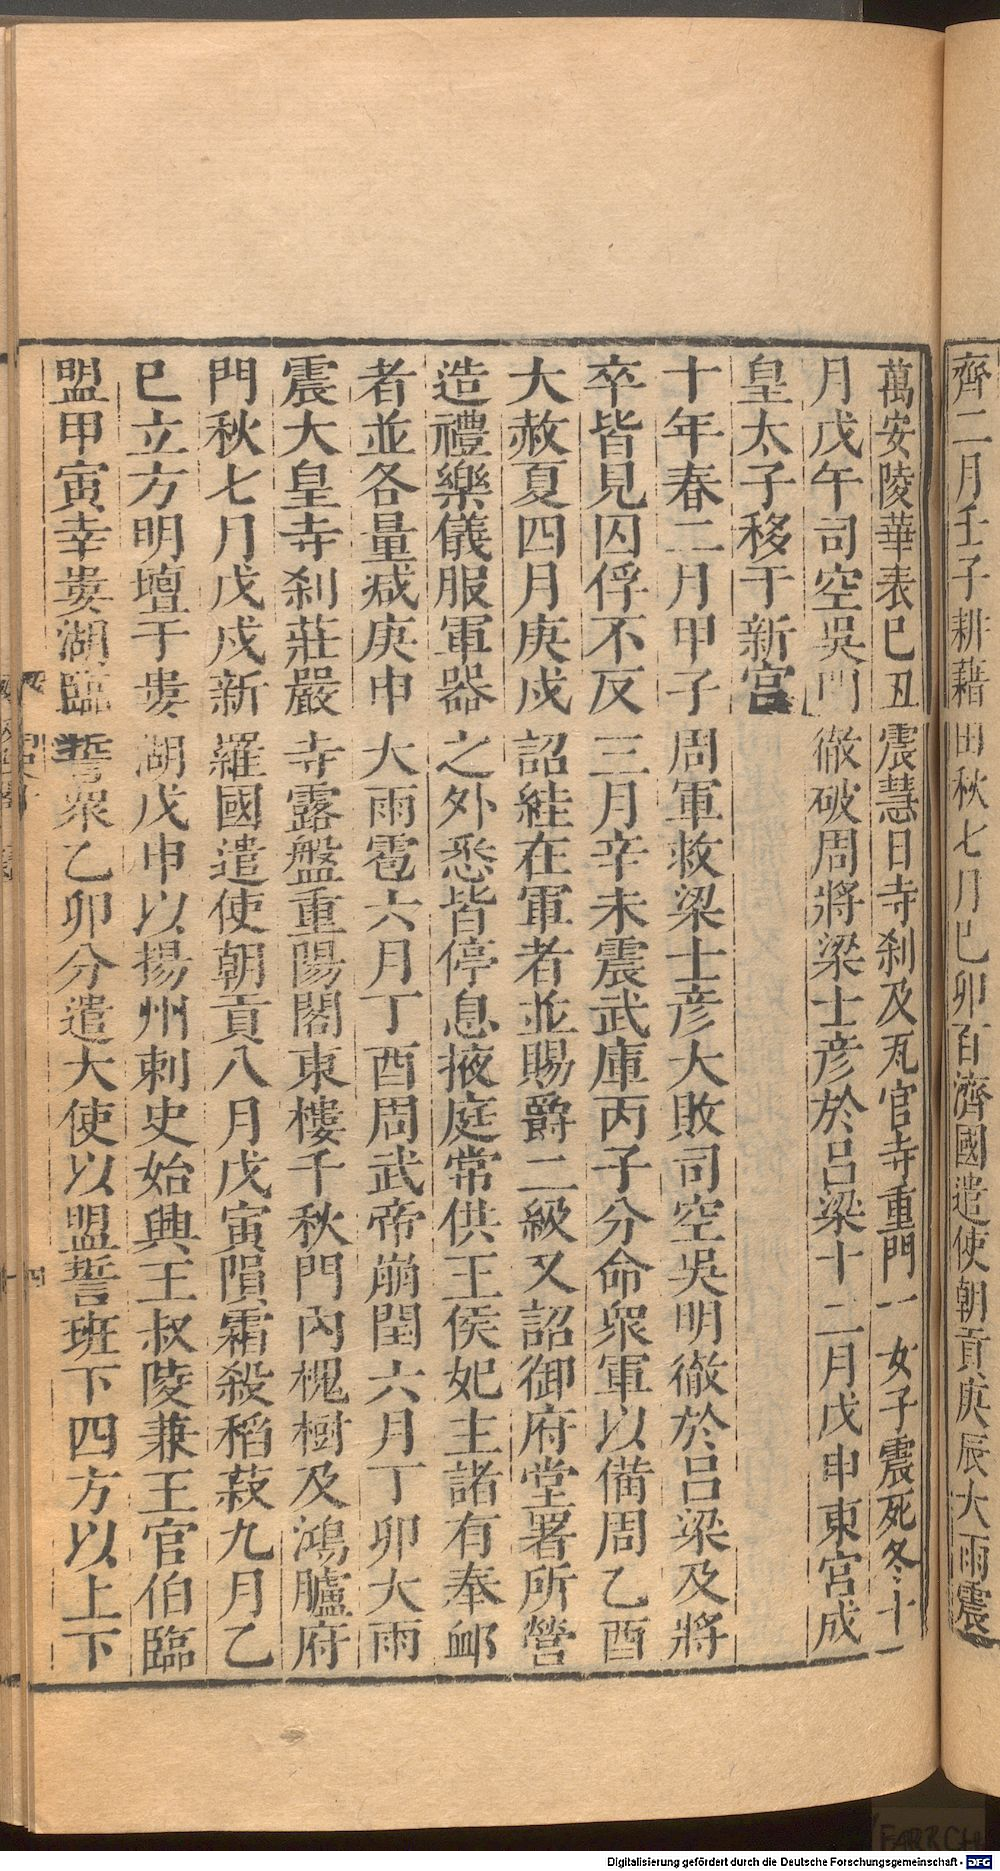 齊二月壬子耕藉田秋七月巳卯百濟國遣使朝貢庚辰大雨震
萬安陵華表巳丑震慧日寺刹及瓦官寺重門一女子震死冬十一
月戊午司空吳門徹破周將梁士彦於呂梁十二月戊申東宫成
皇太子移于新宫
十年春二月甲子周軍救梁士彦大敗司空吳明徹於呂梁及將
卒皆見囚俘不反三月辛未震武庫丙子分命衆軍以備周乙酉
大赦夏四月庚戌詔絓在軍者並賜爵二級又詔御府堂署所營
造禮樂儀服軍器之外悉皆停息掖庭常供王侯妃主諸有奉邺
者並各量減庚申大雨雹六月丁酉周武帝崩閏六月丁卯大雨
震大皇寺刹莊嚴寺露盤重陽閣東樓千秋門内槐樹及鴻臚府
門秋七月戊戌新羅國遣使朝貢八月戊寅隕霜殺稻菽九月乙
巳立方明壇于婁湖戊申以揚州刺史始興王叔陵兼王官伯臨
盟甲寅幸婁湖臨誓衆乙卯分遣大使以盟誓班下四方以上下
Digitalisierung gefördert durch die Deutsche Forschungsgemeinschaft - DFG